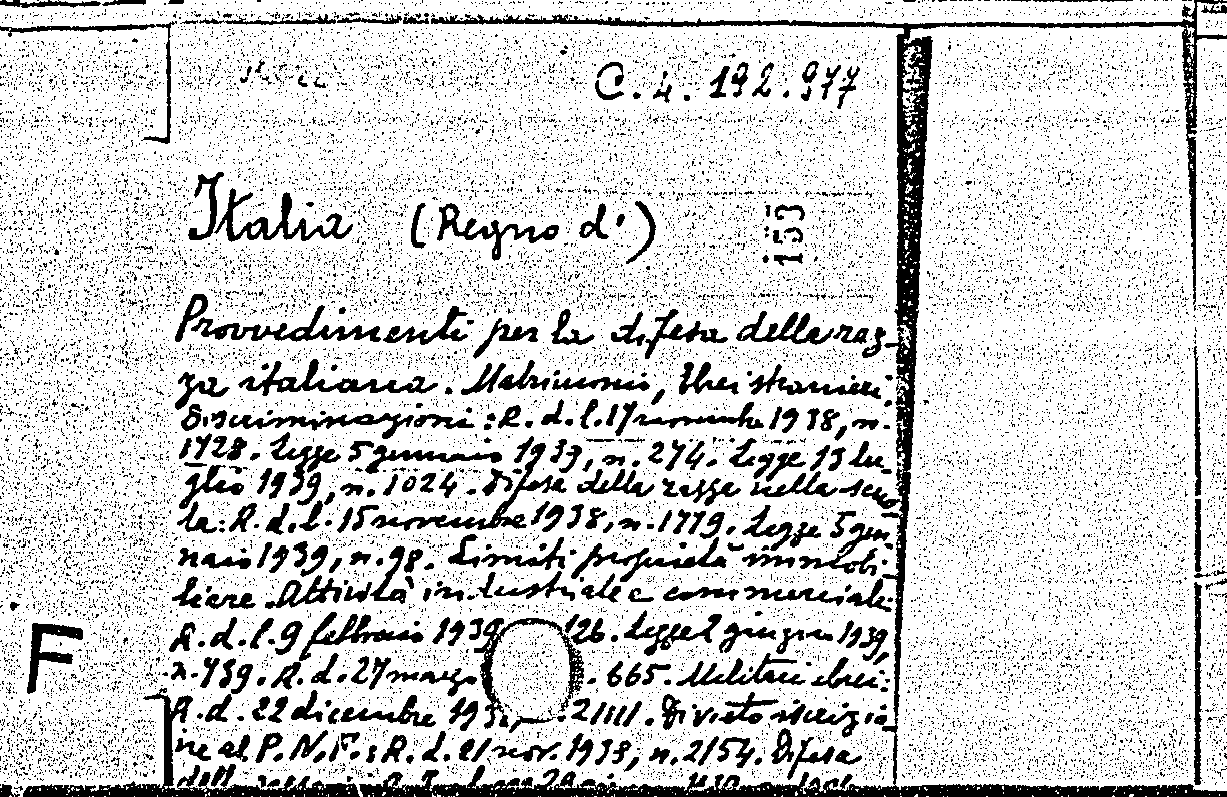 C.4.192.977
Italia (Regno d')
153
Provvedimenti per la difesa della raz-
za italiana. Matrimonio, Ebrei stranieri,
discriminazioni: R.d.l. 17 novembre 1938, n.
1728. Legge 5 gennaio 1939, n. 274. Legge 13 lu-
glio 1939, n. 1024. Difesa della razza nella scuo-
la: R.d.l. 15 novembre 1938, n. 1779. Legge 5 gen-
naio 1939, n. 98. Limiti proprietà immobi-
liare. Attività industriale e commerciale:
R.d.l. 9 febbraio 1939 126. Legge 2 giugno 1939,
n. 739. R.d. 27 marzo . 665. Militari ebrei:
R.d. 22 dicembre 193 .2111. Divieto iscrizio-
ne al P.N.F.: R.d. 21 nov. 1938, n. 2154. Difesa
F